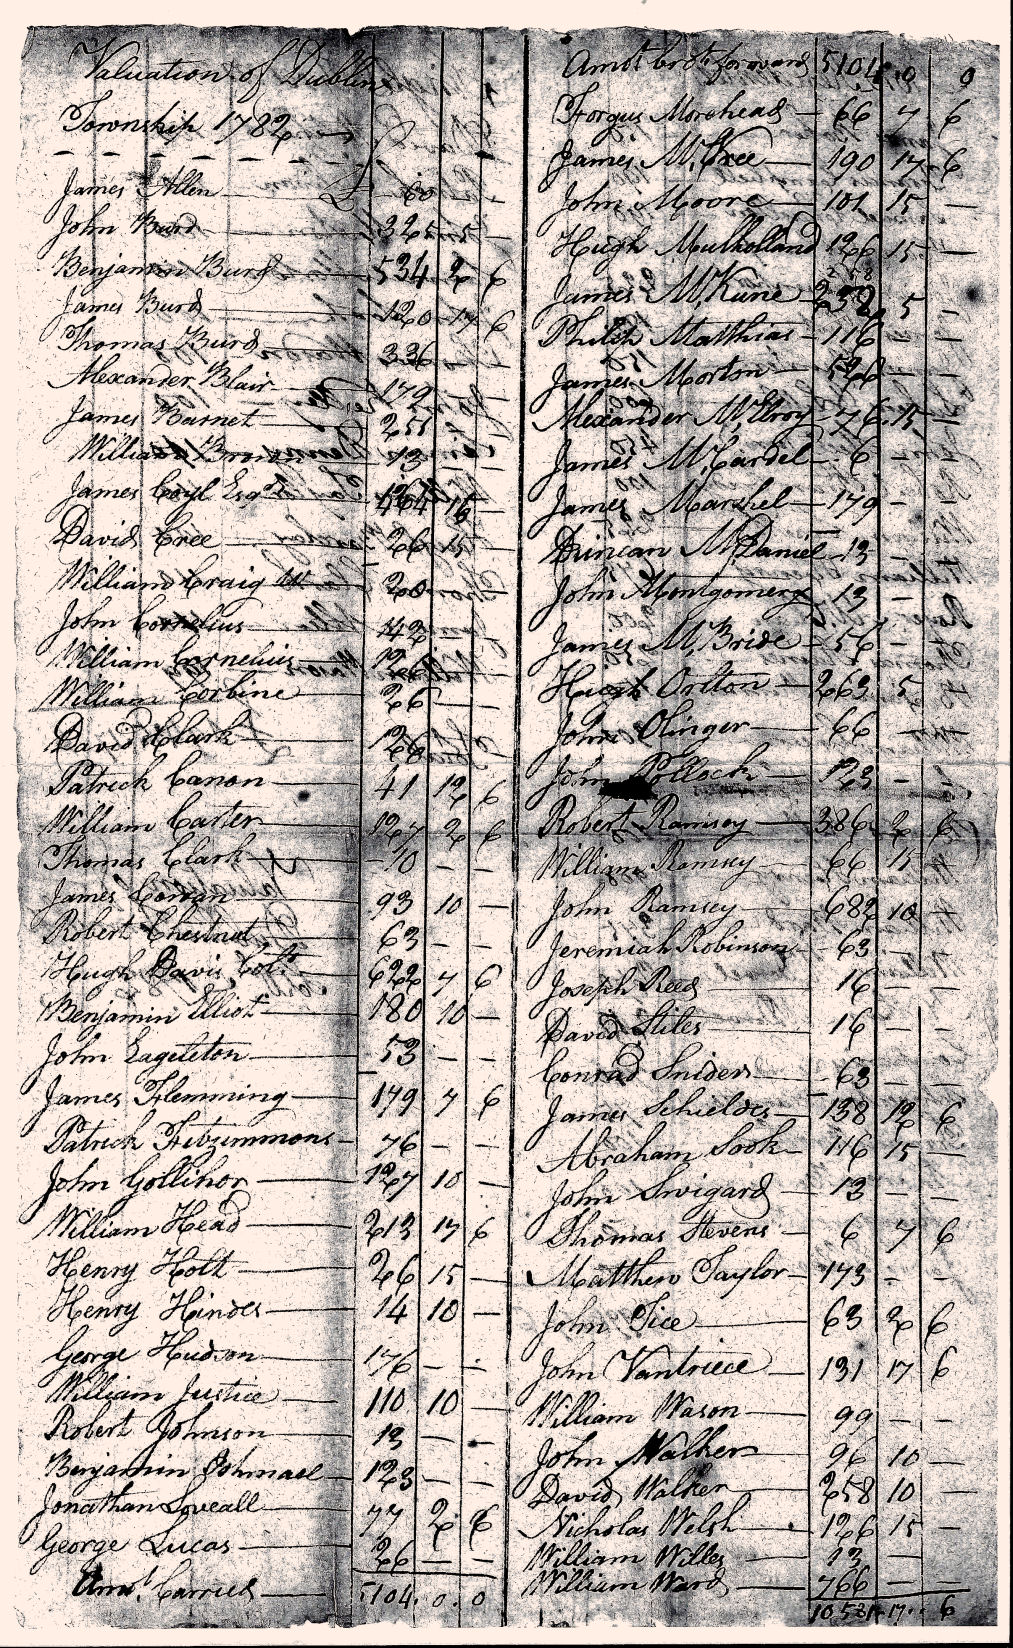 Valuation of Dublin
Township 1782
James Allen £ 60 - -
John Burd 325 15 -
Benjamin Burd 534 2 6
James Burd 120 17 6
Thomas Burd 336 - -
Alexander Blair 179 - -
James Barnet 255 - -
William Brown 13 - -
James Coyl Esqr 464 16 -
David Cree 26 15 -
William Craig 20 - -
John Cornelius 42 - -
William Cornelius 126 - -
William Corbine 26 - -
David Clark 126 - -
Patrick Canon 41 12 6
William Carter 127 2 6
Thomas Clark 10 - -
James Cowan 93 10 -
Robert Chestnut 63 - -
Hugh Davis Colt 622 7 6
Benjamin Elliot 180 10 -
John Eageleton 53 - -
James Flemming 179 7 6
Patrick Fitzimmons 76 - -
John Gollihor 127 10 -
William Head 213 17 6
Henry Holt 26 15 -
Henry Hindes 14 10 -
George Hudson 176 - -
William Justice 110 10 -
Robert Johnson 13 - -
Benjamin Ishmael 123 - -
Jonathan Loveall 77 2 6
George Lucas 26 - -
Amt. Carried 5104. 0. 0
Amot brot forward 5104. 0 0
Forgus Morehead 66 7 6
James McCree 190 17 6
John Moore 101 15 -
Hugh Mulholland 126 15 -
James McKune 258 5 -
Philip Matthias 116 - -
James Morton - -
Alexander McElroy 76 15 -
James McCardel 6 - -
James Marshel 179 - -
Duncan McDaniel 13 - -
John Montgomery 13 - -
James McBride 56 - -
Hugh Orlton 263 5 -
John Olinger 66 - -
John Pollock 123 - -
Robert Ramsey 386 2 6
William Ramsey 66 15 -
John Ramsey 682 10 -
Jeremiah Robinson 63 - -
Joseph Reed 16 - -
David Stiles 16 - -
Conrad Snider 63 - -
James Schields 138 12 6
Abraham Sook 116 15 -
John Swigard 13 - -
Thomas Stevens 6 7 6
Matthew Taylor 173 - -
John Tice 63 2 6
John Vantriece 131 17 6
William Wason 99 - -
John Walker 96 10 -
David Walker 258 10 -
Nicholas Welsh 126 15 -
William Willes 13 - -
William Ward 766 - -
10,581. 17. 6